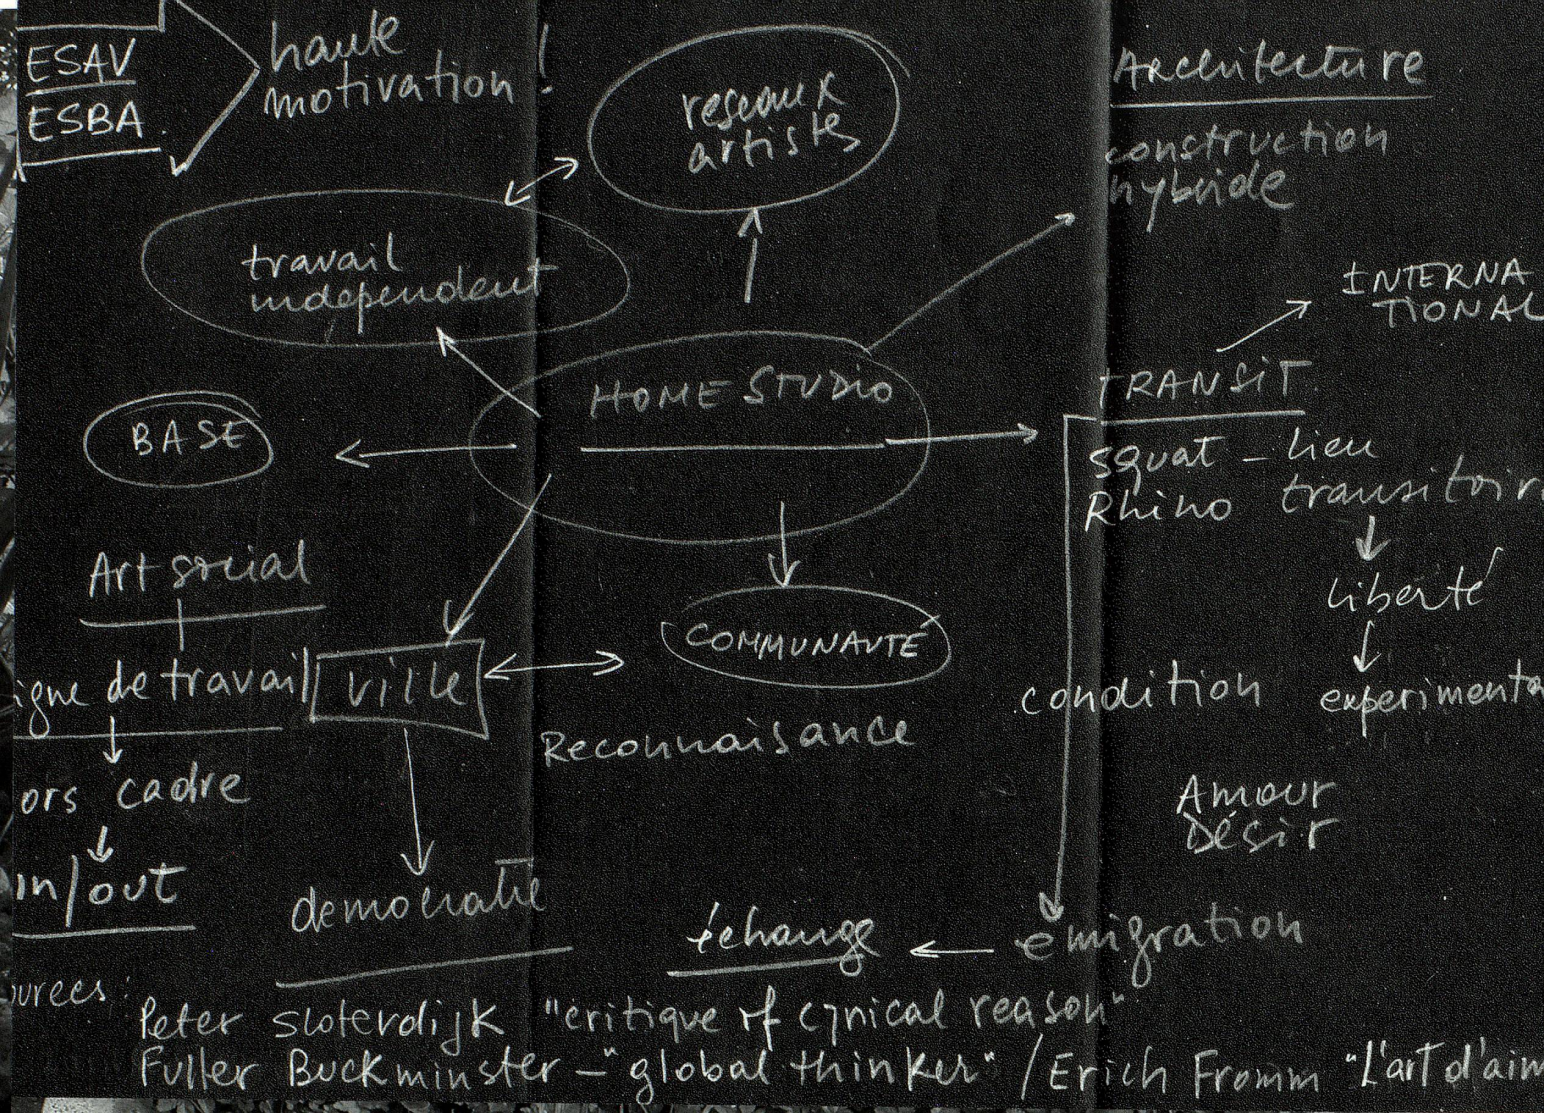 ESAV
ESBA
haute
motivation !
reseaux
artistes
Architecture
construction
hybride
travail
independent
INTERNA
TIONAL
HOME STUDIO
TRANSIT
BASE
squat - lieu
Rhino transitoir
liberté
Art social
COMMUNAUTÉ
igne de travail
ville
condition experimenta
Reconnaisance
ors cadre
Amour
Désir
in/out
democratie
échange
emigration
ources:
Peter Sloterdijk "critique of cynical reason"
Fuller Buckminster - "global thinker" / Erich Fromm "L'art d'aim